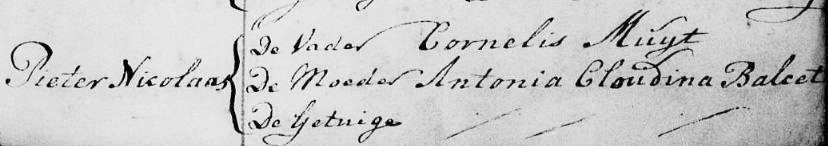 De Vader Cornelis Muyt
Pieter Nicolaas De Moeder Antonia Cloudina Balcet
De Getuige